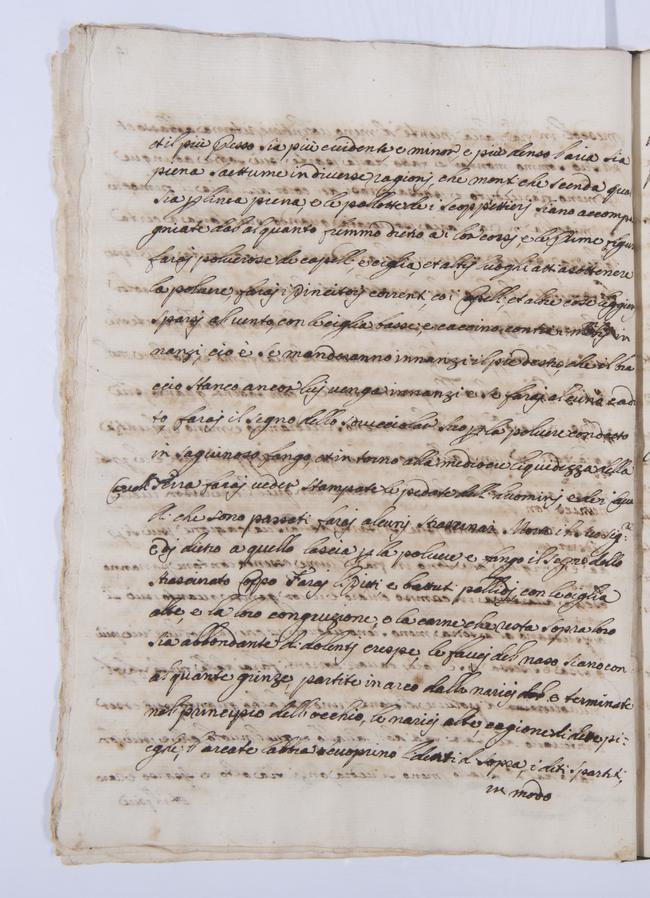 et il più spesso sia più evidente, e minor, e più denso l'aria sia
piena saettume in diverse ragioni, che monti, che scenda, qual
sia p linea piena, e le pallotte de i scoppettierj siano accompa
gniate dal alquanto fummo dietro a i lor corsj e le prime figure
faraj polverose de capelli e ciglia et altrj luoghi atti a sostenere
la polvere faraj i vincitorj correnti co i capelli, et altre cose leggier
sparsj al vento, con le ciglia basse, e caccino contrarj in
nanzi, ciò è se manderanno innanzi il piè destro, che il bra
ccio stanco ancor lui venga innanzi e se faraj alcuno cadu
to faraj il segno dello sdrucciolar su p la polvere condotto
in saguinoso fango, et in torno alla mediocre liquidezza della
Terra faraj veder stampate le pedate dell' huominj e de i Cava
lli che sono passati faraj alcunj strascinar Morti i suo Sigri
e dj dietro a quello lascia p la polvere e fango il segno dello
strascinato corpo Faraj li Vinti e battuti pallidj con le ciglia
alte, e la loro congiuzione, e la carne che resta sopra loro
sia abbondante di dolentj crespe, le faucj del naso siano con
alquante grinze, partite in arco dalle naricj e terminate
nel principio dell' occhio, le naricj alte, cagione di dette pi=
eghe, l' arcate labbra scuoprino i denti di sopra, i detti spartiti,
in modo